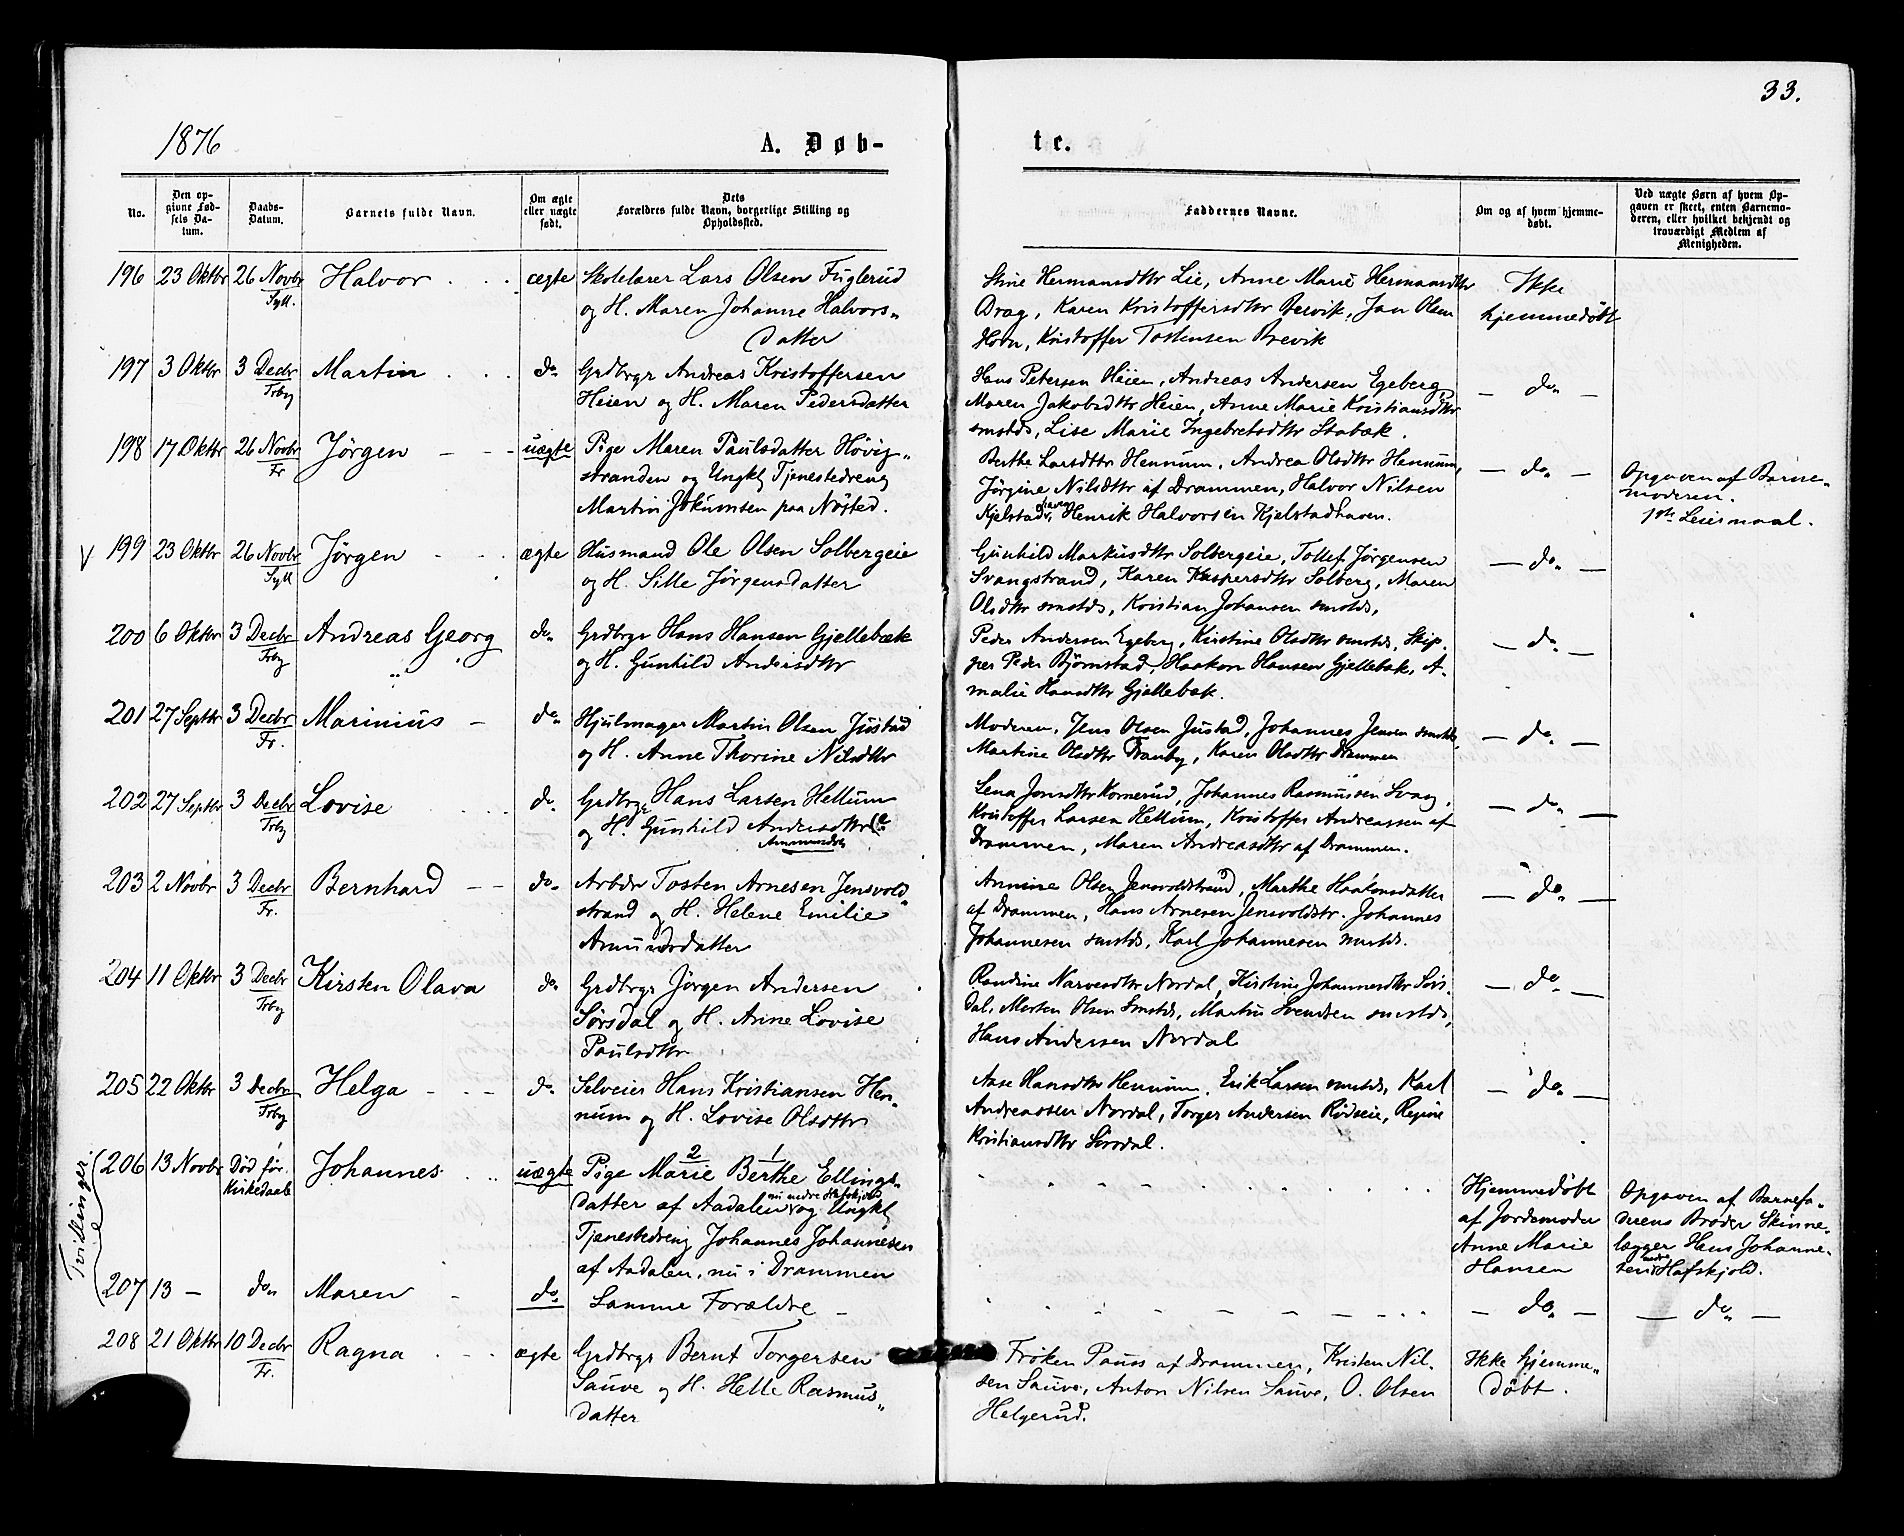 33.
1876
A. Døb-
te.
No.
Den op-
givne Fød-
sels Da-
tum.
Daabs-
Datum.
Barnets fulde Navn.
Om ægte
eller uægte
født.
Dets
Forældres fulde Navn, borgerlige Stilling og
Opholdssted.
Faddernes Navne.
Om og af hvem hjemme-
døbt.
Ved uægte Børn af hvem Op-
gaven er skeet, enten Barnemo-
deren, eller hvilket bekjendt og
troværdigt Medlem af
Menigheden.
196 23 Oktbr 26 Novbr Halvor ægte Skolelærer Lars Olsen Fuglerud
Syll.
og H. Maren Johanne Halvors-
datter
Stine Hermansdttr Lie, Anne Marie Hermansdttr
Drag, Karen Kristoffersdttr Brevik, Jan Olsen
Horn, Kristoffer Tostensen Brevik
Ikke
hjemmedøbt
197 3 Oktbr 3 Decbr Martin do. Grdbrgr Andreas Kristoffersen
Trby
Heien og H. Maren Pedersdatter
Hans Petersen Heien, Andreas Andersen Egeberg,
Maren Jakobsdttr Heien, Anne Marie Kristiansdttr
smstds, Lise Marie Ingebretsdttr Stabæk.
— do. —
198 17 Oktbr 26 Novbr Jørgen uægte Pige Maren Paulsdatter Høvig-
Fr
stranden og Ungkl Tjenestedreng
Martin Jokumsen paa Nøsted.
Berthe Larsdttr Hennum, Andrea Olsdttr Hennum,
Jørgine Nilsdttr af Drammen, Halvor Nilsen
Kjelstadhaven, Henrik Halvorsen Kjelstadhaven.
— do. —
Opgaven af Barne-
moderen.
1ste Leiermaal.
V 199 23 Oktbr 26 Novbr Jørgen ægte Husmand Ole Olsen Solbergeie
Syll
og H. Sille Jørgensdatter
Gunhild Markusdttr Solbergeie, Tollef Jørgensen
Svangstrand, Karen Kaspersdttr Solberg, Maren
Olsdttr smstds, Kristian Johansen smstds,
— do. —
200 6 Oktbr 3 Decbr Andreas Georg do. Grdbrgr Hans Hansen Gjellebæk
Trby
og H. Gunhild Andersdttr
Peder Andersen Egeberg, Kirstine Olsdttr smstds, Skip-
per Peder Bjørnstad, Haakon Hansen Gjellebæk, A-
malie Hansdttr Gjellebæk.
— do. —
201 27 Septbr 3 Decbr Marinius do. Hjulmager Martin Olsen Justad
Fr.
og H. Anne Thorine Nilsdttr
Moderen, Jens Olsen Justad, Johannes Jensen smstds,
Martine Olsdttr Tranby, Karen Olsdttr Drammen
— do. —
202 27 Septbr 3 Decbr Lovise do. Grdbrgr Hans Larsen Hellum
Trby
og H. Gunhild Andersdttr
Ammundsdtr
Lena Jonsdttr Kornerud, Johannes Rasmussen Svang,
Kristoffer Larsen Hellum, Kristoffer Andreassen af
Drammen, Maren Andreasdttr af Drammen.
— do. —
203 2 Novbr 3 Decbr Bernhard do. Arbdr Tosten Arnesen Jensvold-
Fr.
strand og H. Helene Emilie
Amundsdatter
Annine Olsen Jensvoldstrand, Marthe Haakonsdatter
af Drammen, Hans Arnesen Jensvoldstr. Johannes
Johannesen smstds, Karl Johannesen smstds.
— do. —
204 11 Oktbr 3 Decbr Kirsten Olava do. Grdbrgr Jørgen Andersen
Trby
Sørsdal og H. Anne Lovise
Paulsdttr
Randine Narvesdttr Nordal, Kirstine Johannesdttr Sørs-
dal, Morten Olsen Smstds, Martin Svendsen smstds,
Hans Andersen Nordal
— do. —
205 22 Oktbr 3 Decbr Helga do. Selveier Hans Kristiansen Hen-
Trby
num og H. Lovise Olsdttr
Aase Hansdttr Hennum, Erik Larsen smstds, Karl
Andreassen Nordal, Torger Andersen Rødseie, Regine
Kristiansdttr Sørsdal.
— do. —
Tvillinger.
206 13 Novbr Død før Johannes uægte Pige Marie Berthe Ellings-
2 1
Kirkedaab
datter af Aadalen nu nedre Hafskjold og Ungkl,
Tjenestedreng Johannes Johannesen
af Aadalen, nu i Drammen
Hjemmedøbt
af Jordemoder
Anne Marie
Hansen
Opgaven af Barnefa-
derens Broder Skinne-
lægger Hans Johanne-
sen nedre Hafskjold.
207 13 — do. Maren do. Samme Forældre —
— do. —
— do. —
208 21 Oktbr 10 Decbr Ragna ægte Grdbrgr Bernt Torgersen
Fr.
Sauve og H. Helle Rasmus-
datter
Frøken Paus af Drammen, Kristen Nil-
sen Sauve, Anton Nilsen Sauve, O. Olsen
Helgerud.
Ikke hjemme-
døbt.